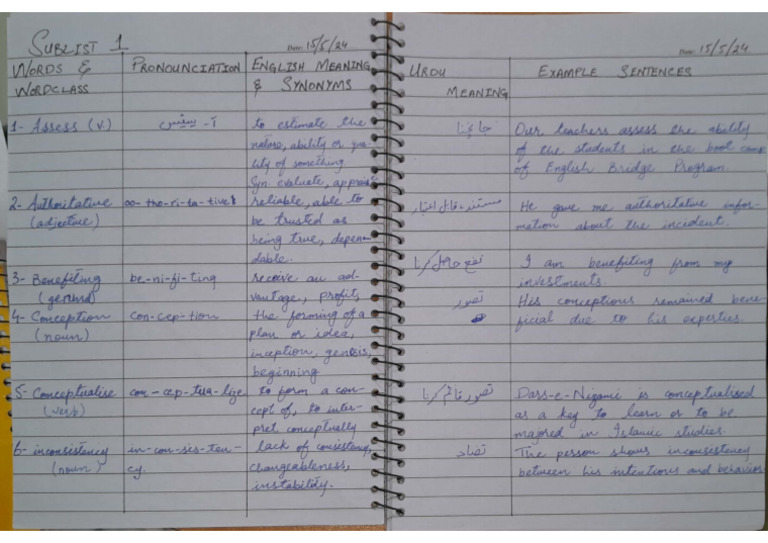 SUBLIST 1
Date: 15/5/24
WORDS & WORDCLASS
PRONOUNCIATION
ENGLISH MEANING & SYNONYMS
1- Assess (v.)
آ۔ سیس
to estimate the
nature, ability or qua-
lity of something
Syn. evaluate, appraise
2- Authoritative
(adjective)
oo-tho-ri-ta-tive
reliable, able to
be trusted as
being true, depen-
dable.
3- Benefiting
(gerund)
be-ni-fi-ting
receive an ad-
vantage, profit,
4- Conception
(noun)
con-cep-tion
the forming of a
plan or idea,
inception, genesis,
beginning
5- Conceptualise
(verb)
con-cep-tua-lize
to form a con-
cept of, to inter-
pret conceptually
6- inconsistency
(noun)
in-con-sis-ten-
cy.
lack of consistency,
changeableness,
instability.
Date: 15/5/24
URDU
MEANING
EXAMPLE SENTENCES
جانچنا
Our teachers assess the ability
of the students in the boot camp
of English Bridge Program
مستند، قابل اعتبار
He gave me authoritative infor-
mation about the incident.
نفع حاصل کرنا
I am benefiting from my
investments.
تصور
His conceptions remained bene-
ficial due to his expertise.
تصور قائم کرنا
Dars-e-Nizami is conceptualised
as a key to learn or to be
majored in Islamic studies.
تضاد
The person shows inconsistency
between his intentions and behavior